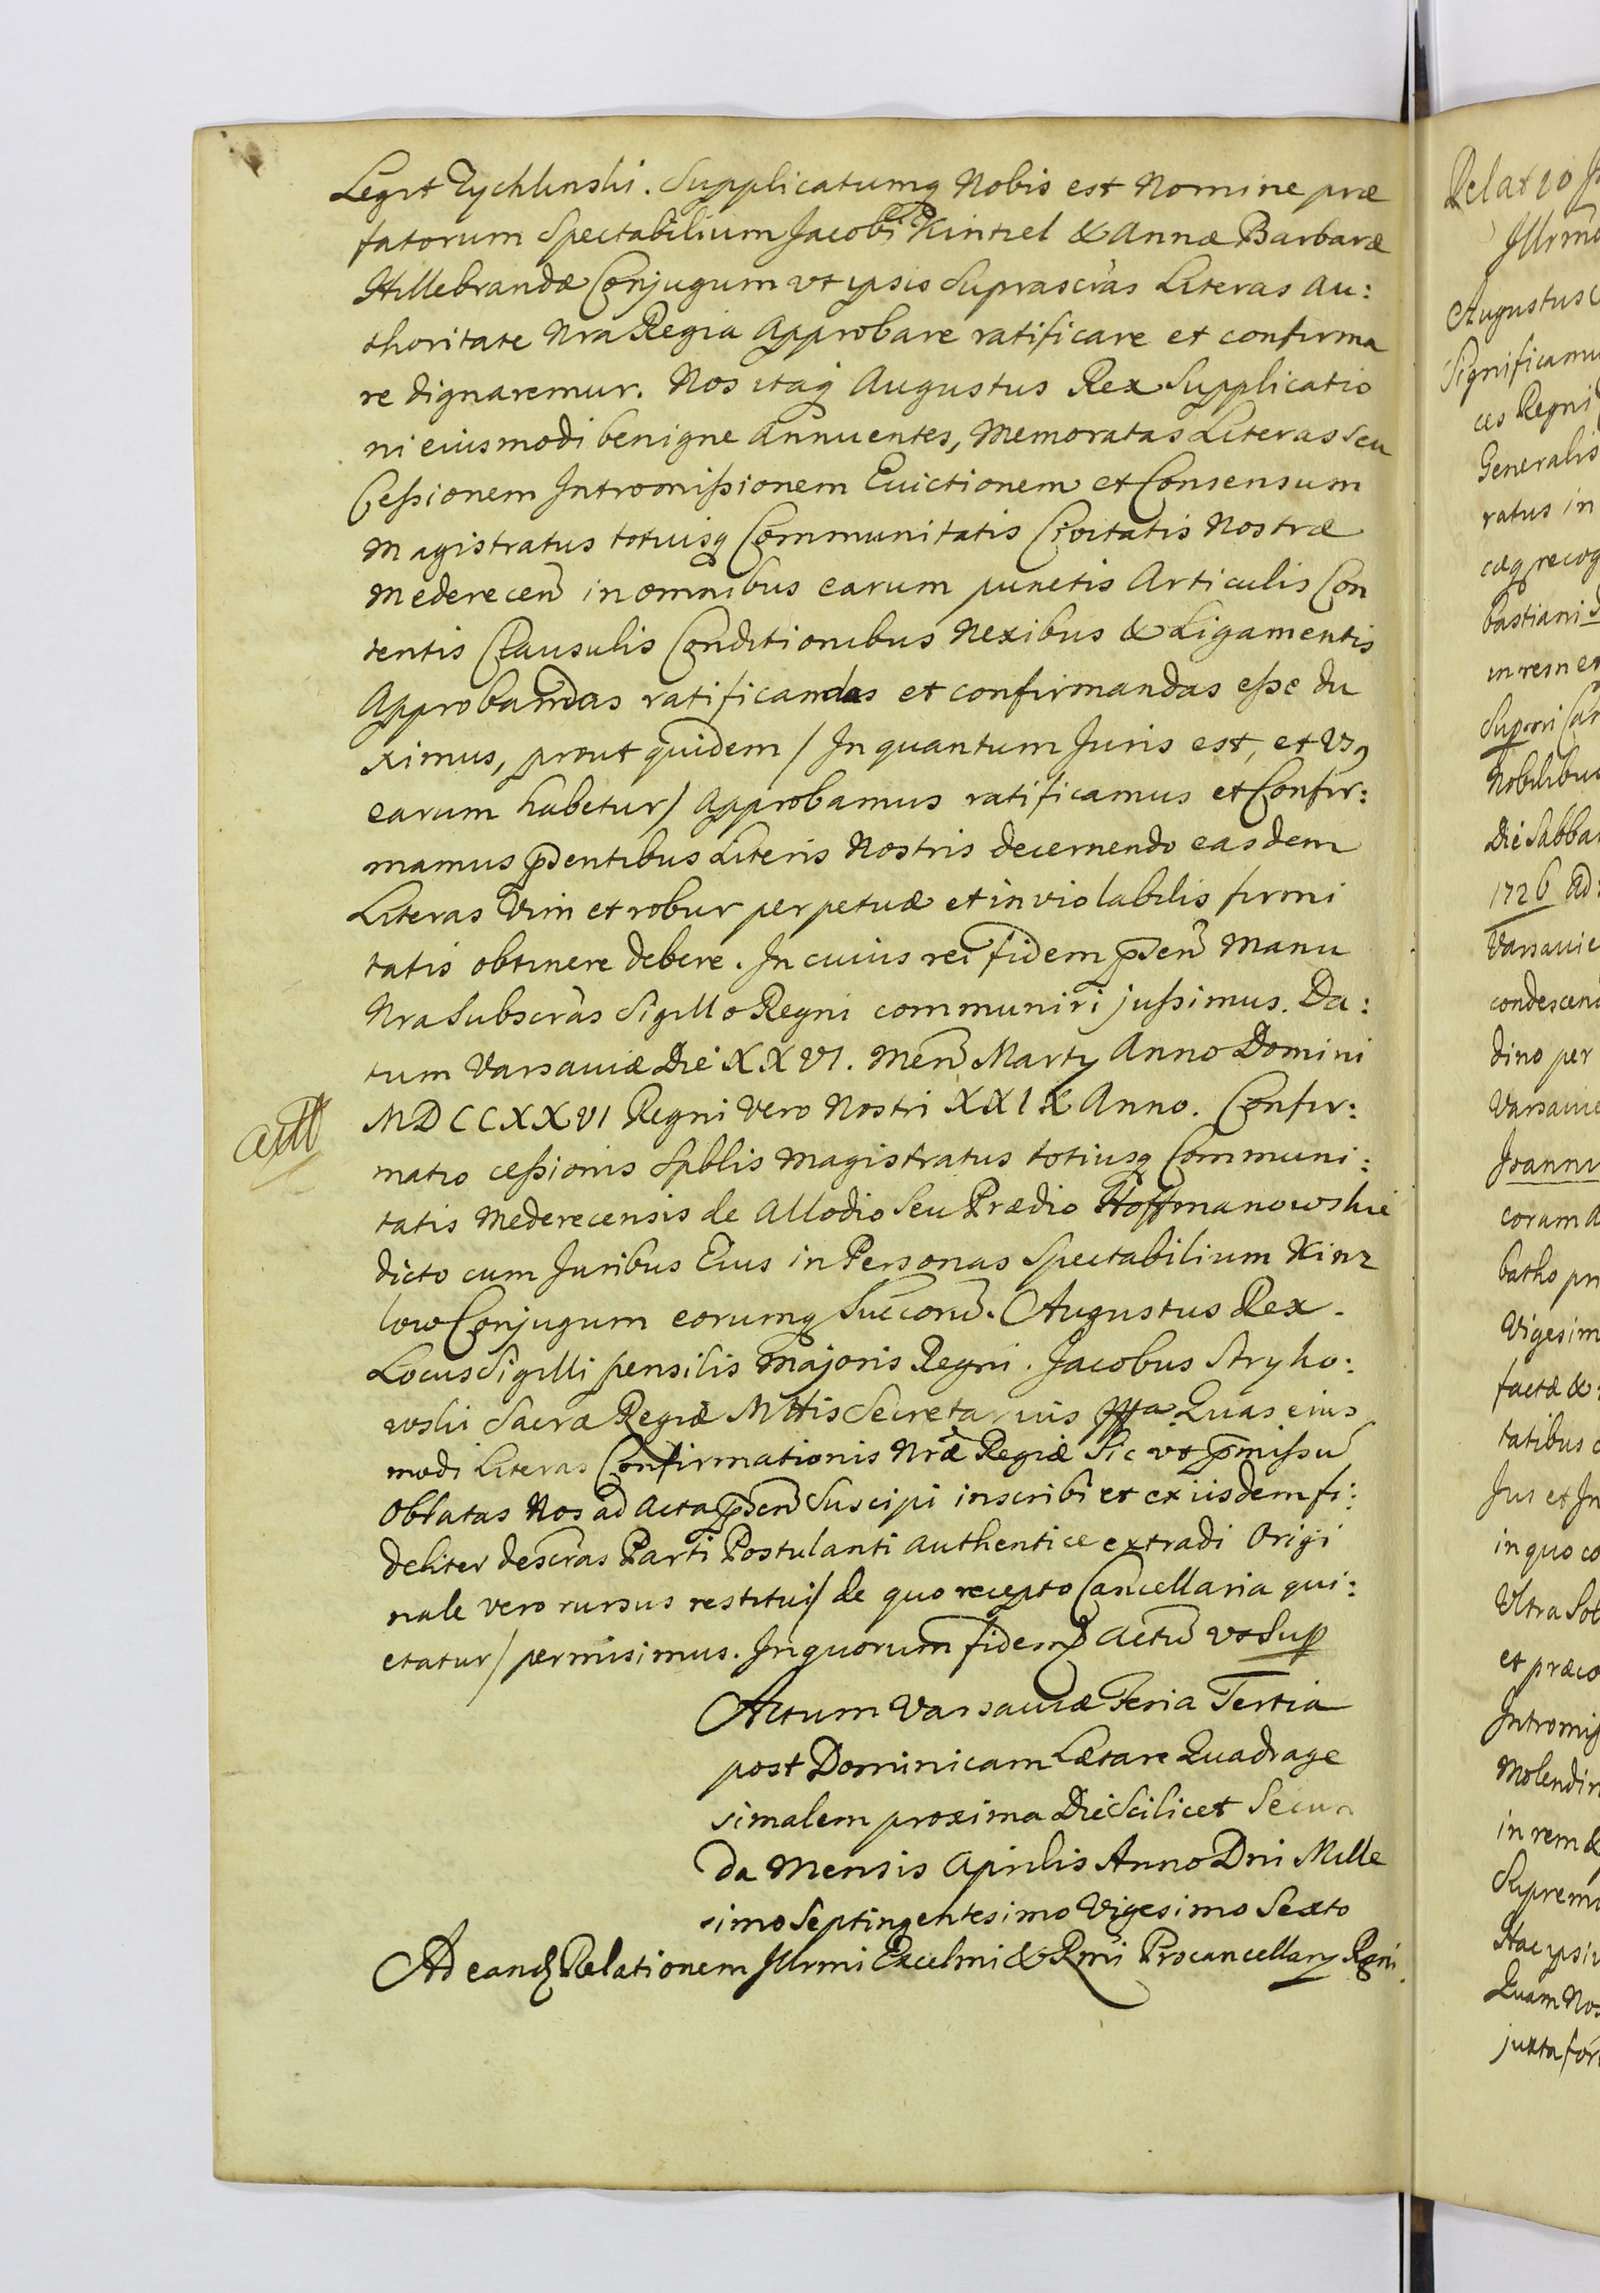 Legit Zychlinski. Supplicatumq Nobis est Nomine præ
fatorum Spectabilium Jacobi Kintzel & Annæ Barbaræ
Hillebrandæ Conjugum ut ipsis Suprascras Literas Au:
thoritate Nra Regia Approbare ratificare et confirma
re dignaremur. Nos itaq Augustus Rex Supplicatio
ni eiusmodi benigne Annuentes, Memoratas Literas Seu
Cessionem Intromissionem Evictionem et Consensum
Magistratus totiusq Communitatis Civitatis Nostræ
Mederecen in omnibus earum punctis Articulis Con
tentis Clausulis Conditionibus Nexibus & Ligamentis
Approbandas ratificandas et confirmandas esse du
ximus, prout quidem / In quantum Juris est, et Usq
earum habetur / Approbamus ratificamus et Confir:
mamus psentibus Literis Nostris decernendo easdem
Literas Vim et robur perpetuæ et inviolabilis firmi
tatis obtinere debere. In cuius rei fidem psen Manu
Nra Subscras Sigillo Regni communiri jussimus. Da:
tum Varsaviæ Die XXVI. Men Martij Anno Domini
MDCCXXVI Regni Vero Nostri XXIX Anno. Confir:
matio cessionis Spblis Magistratus totiusq Communi:
tatis Mederecensis de Allodio Seu Prædio Hoffmanowskie
dicto cum Juribus Eius in Personas Spectabilium Kinz
low Conjugum eorumq Succorum. Augustus Rex.
Locus Sigilli pensilis Majoris Regni. Jacobus Stryko:
wski Sacræ Regiæ Mttis Secretarius mppa Quas eius
modi Literas Confirmationis Nræ Regiæ Sic ut pmissu
Oblatas Nos ad Acta psen Suscipi inscribi et ex iisdem fi:
deliter descras Parti Postulanti Authentice extradi Origi
nale vero rursus restitui / de quo recepto Cancellaria qui:
etatur / permisimus. In quorum fidem Actu ut Sup
Actum Varsaviæ Feria Tertia
post Dominicam Lætare Quadrage
simalem proxima Die Scilicet Secun
da Mensis Aprilis Anno Dni Mille
simo Septingentesimo Vigesimo Sexto
Ad eandq Relationem Illrmi Excelmi & Rmi Procancellarij Regni.
Relatio
Illrmo
Augustus
Significamu
ces Regni
Generalis
ratus in
cæq recog
bastiani
in resn et
Nobilibus
Die Sabba
1726 Ad
Varsavie
condescen
dino per
Varsavie
Joannu
coram A
Vigesim
factæ &
tatibus
Jus et In
in quo co
Ultra
et præco
Intromis
Molendin
in rem &
Supremo
Quam Nos
juxta for